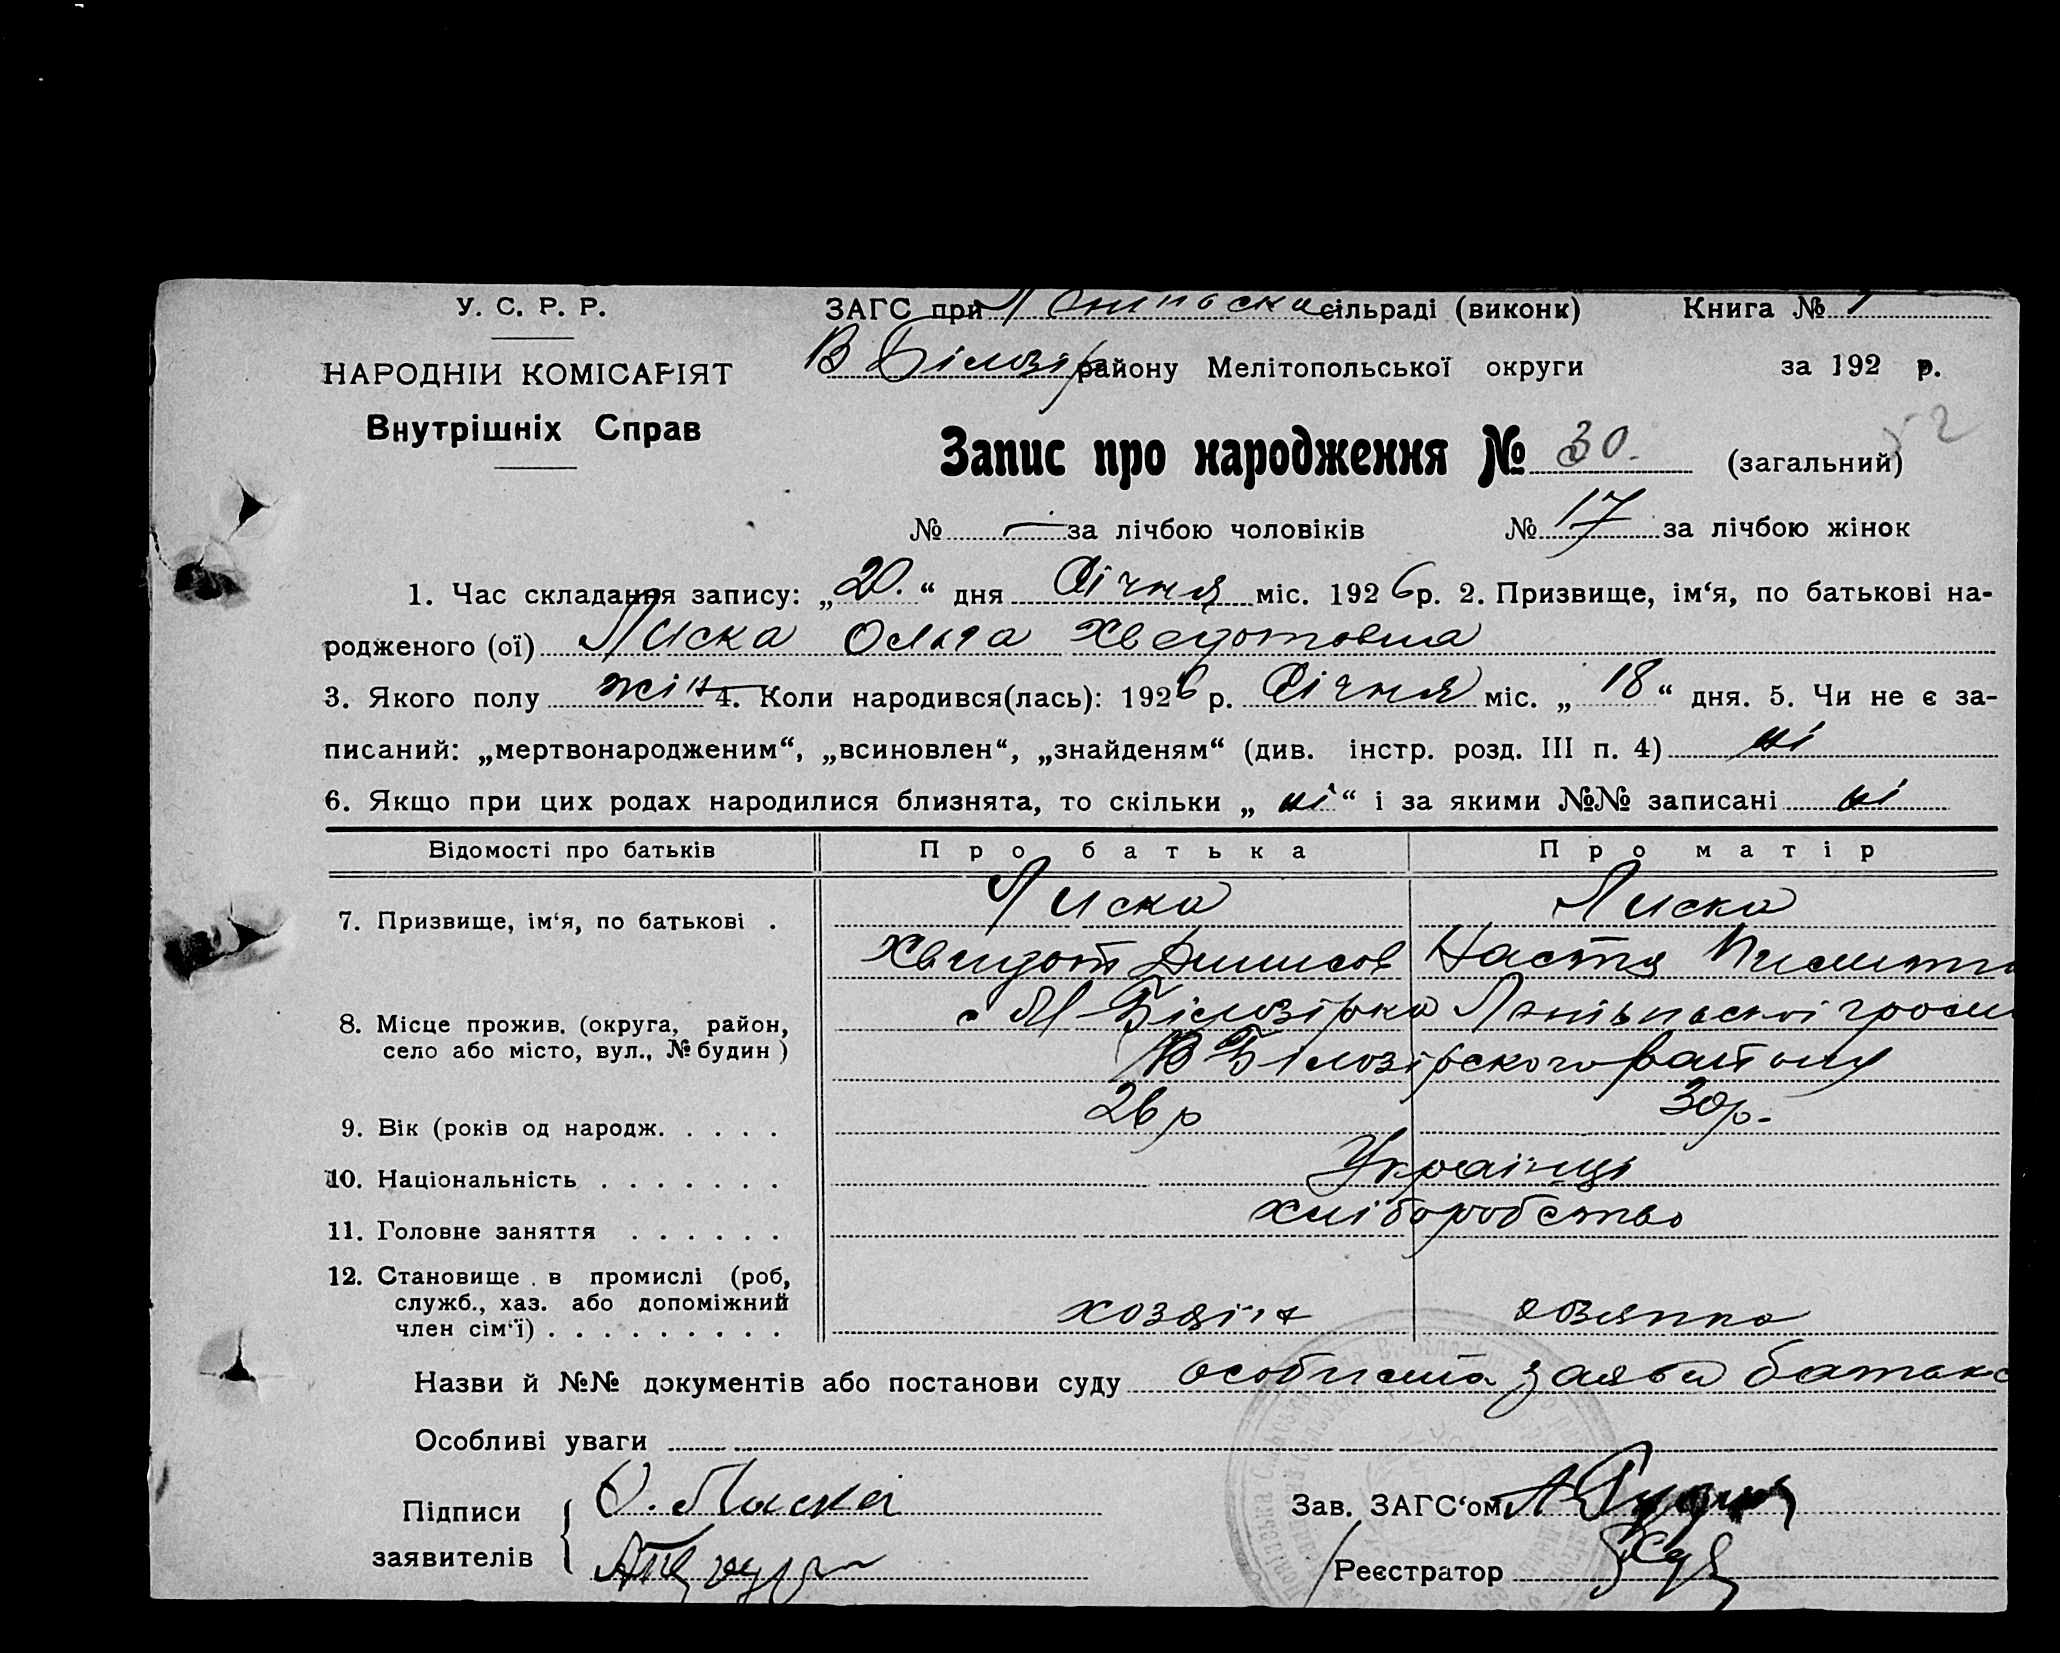 У. С. Р. Р.
ЗАГС при сільраді (виконк) Книга № 1
В Білозір району Мелітопольської округи за 192 р.
НАРОДНІЙ КОМІСАРІЯТ
Внутрішніх Справ
Запис про народження № 30. (загальний)
52
№ — за лічбою чоловіків № 17 за лічбою жінок
1. Час складання запису: „20.“ дня Січня міс. 1926 р. 2. Призвище, ім‘я, по батькові на-
родженого (ої) Лиска Ольга Хведотовна
3. Якого полу жін 4. Коли народився(лась): 1926 р. Січня міс. „18“ дня. 5. Чи не є за-
писаний: „мертвонародженим“, „всиновлен“, „знайденям“ (див. інстр. розд. III п. 4) ні
6. Якщо при цих родах народилися близнята, то скільки „ні“ і за якими №№ записані ні
Відомості про батьків Про батька Про матір
7. Призвище, ім‘я, по батькові . Лиска Лиска
Хведот Денисов Настя
8. Місце прожив. (округа, район, с М-Білозірка
село або місто, вул., № будин) В Білозірского району
9. Вік (років од народж. . . . . 26 р 30 р.
10. Національність . . . . . . . Українці
11. Головне заняття . . . . . . хліборобство
12. Становище в промислі (роб,
служб., хаз. або допоміжний
член сім‘ї) . . . . . . . . . хозяїн
Назви й №№ документів або постанови суду особиста заява батька
Особливі уваги
Підписи О. Лиска Зав. ЗАГС‘ом
заявителів Реєстратор